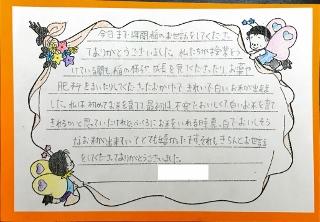 今日まで1年間稲のお世話をしてくださっ
てありがとうございました。私たちが授業をう
けている間も稲の様子や成長を見てくださったり、お薬や
肥料をまいたりしてくださったおかげで、きれいな白いお米が出来ま
した。私は初めてお米を育てて最初は、不安でおいしくて白いお米を育て
きれるかと思っていたけれど、ふくろにお米をいれる時、真っ白でおいしそう
なお米が出来ていてとても嬉しかったです。それもきちんとお世話
をしてくださってありがとうございました。